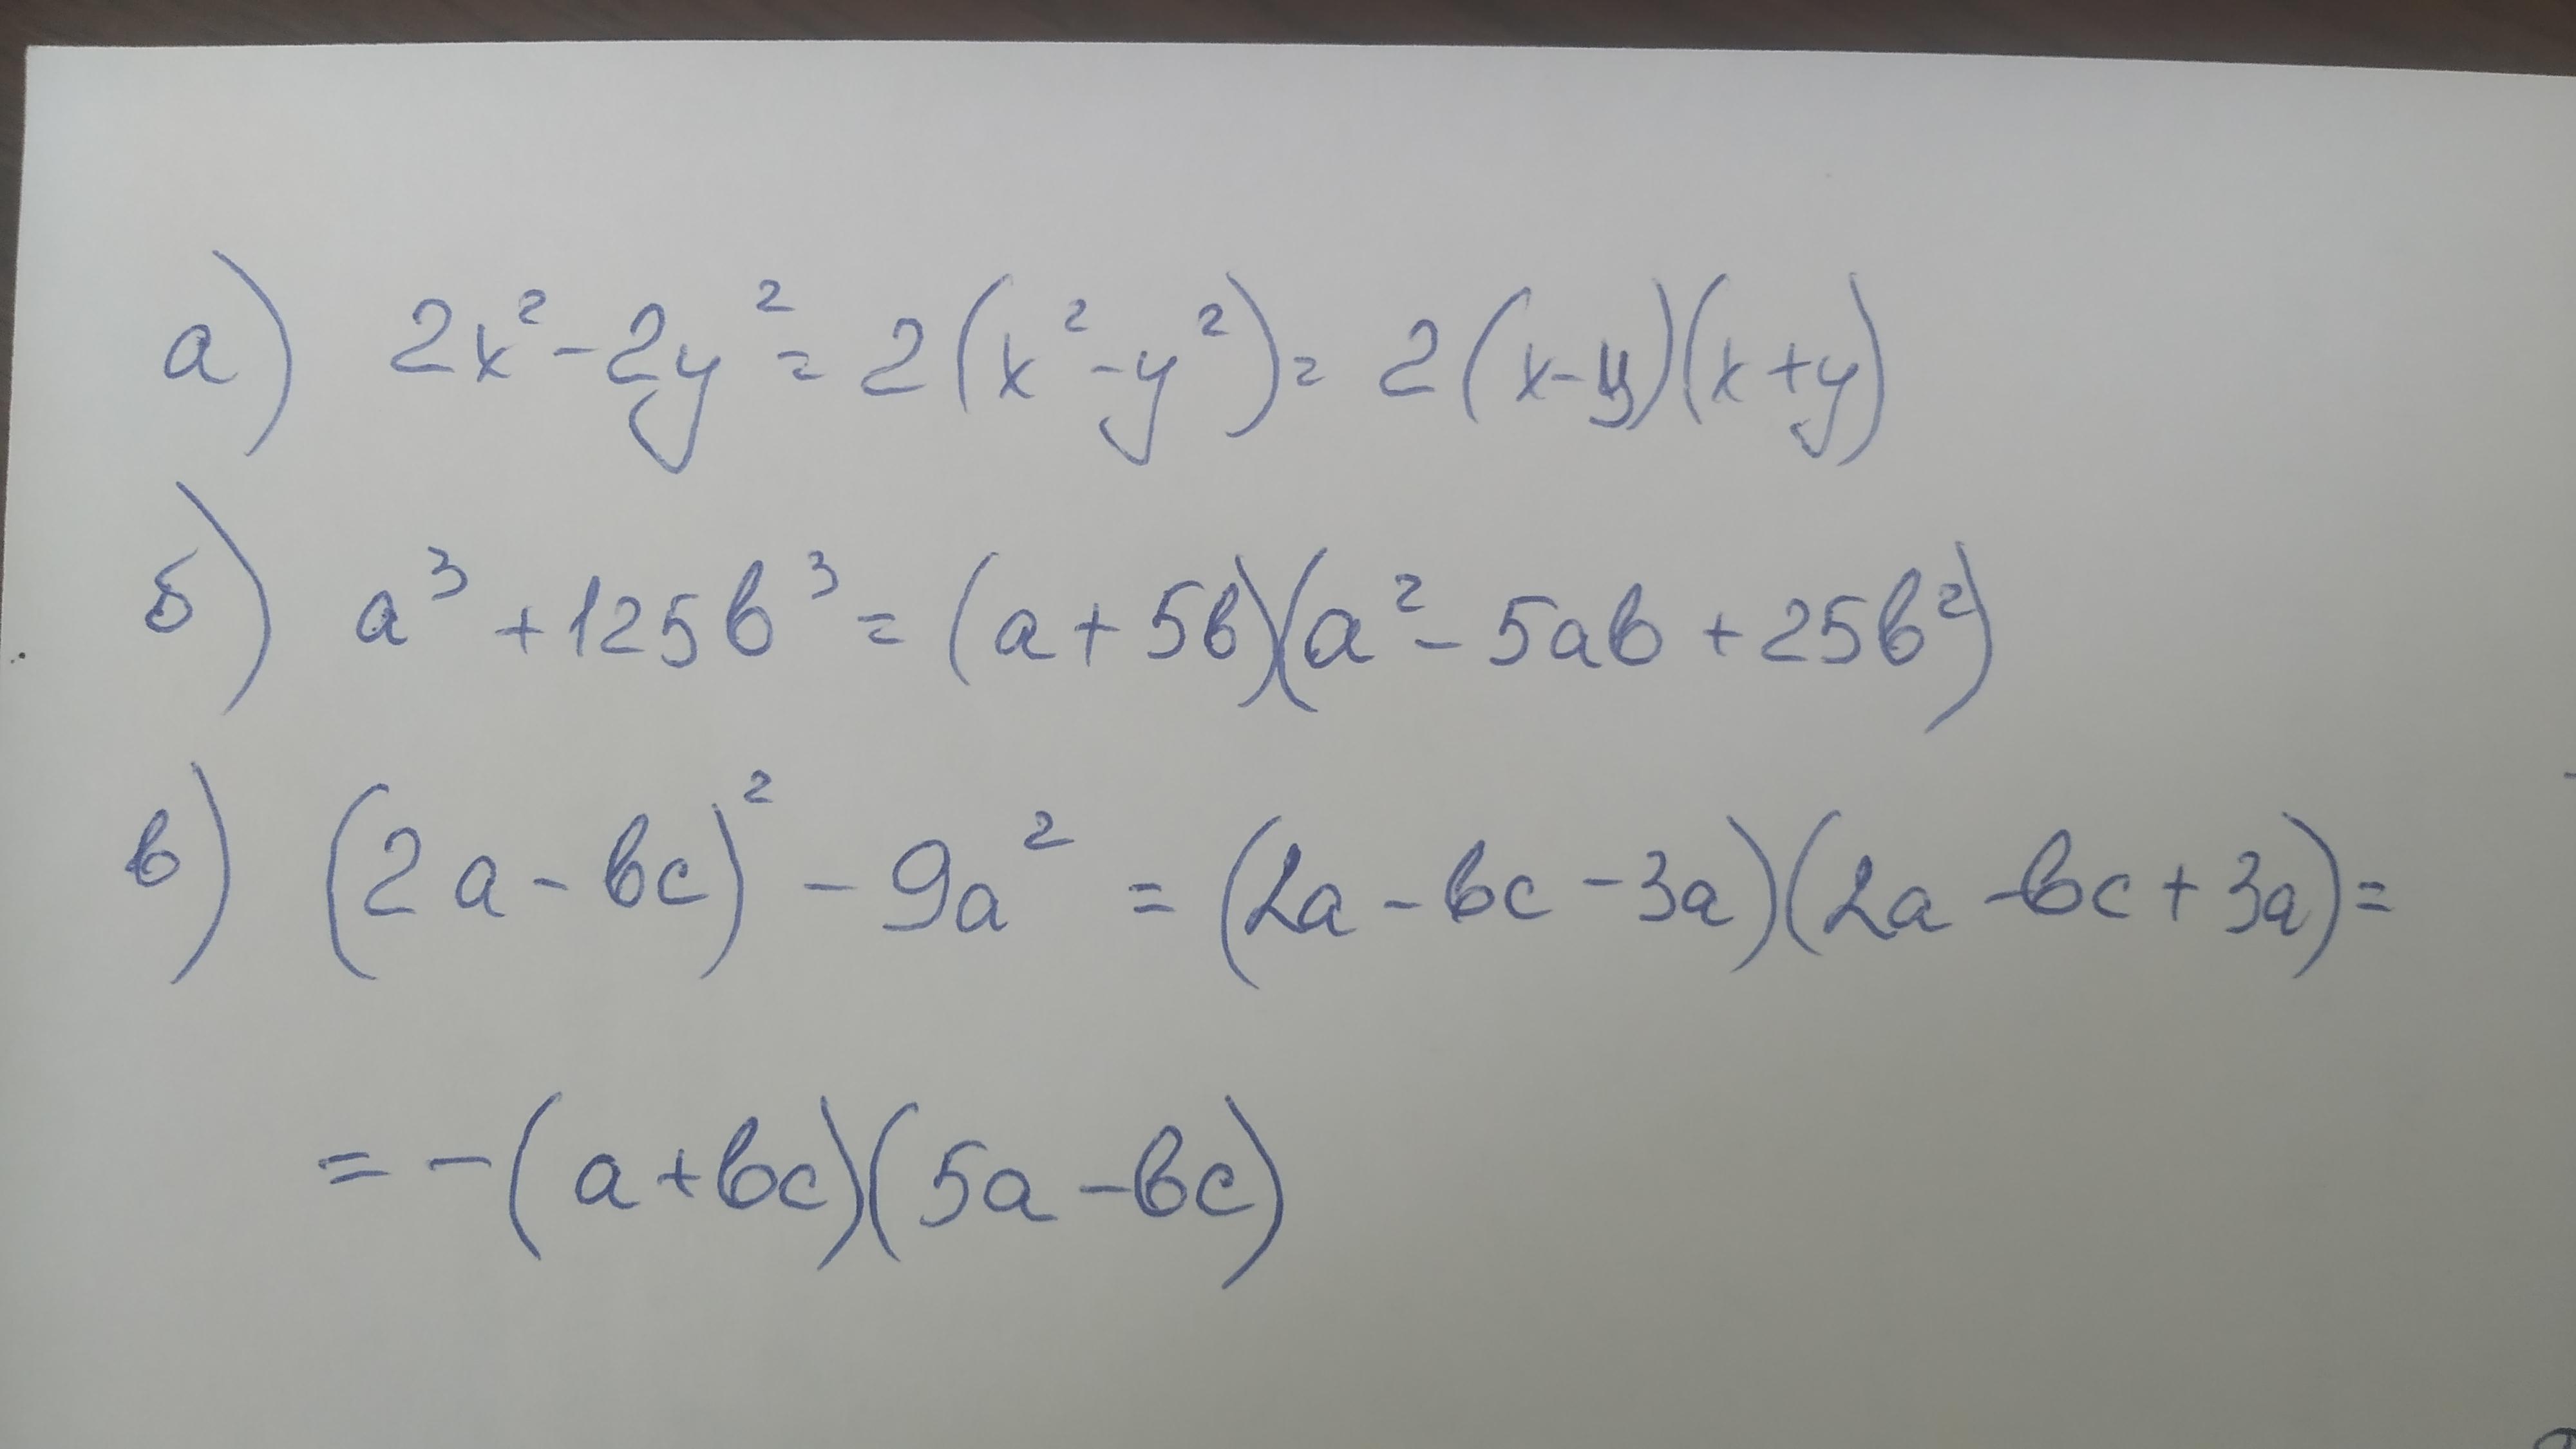 а) 2x² - 2y² = 2(x² - y²) = 2(x - y)(x + y)
б) a³ + 125b³ = (a + 5b)(a² - 5ab + 25b²)
в) (2a - bc)² - 9a² = (2a - bc - 3a)(2a - bc + 3a) =
= -(a + bc)(5a - bc)